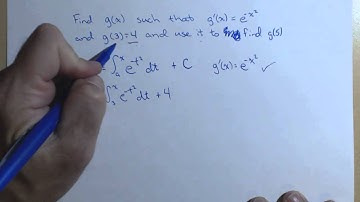 Find g(x) such that g'(x) = e^{-x²}
and g(3)=4 and use it to find g(5)
= ∫_a^x e^{-t²} dt + C g'(x) = e^{-x²} ✓
∫_3^x e^{-t²} dt + 4